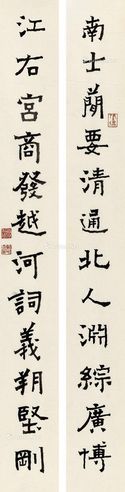 南士蕑要清通北人淵綜廣博
江右宮商發越河詞義朔堅剛